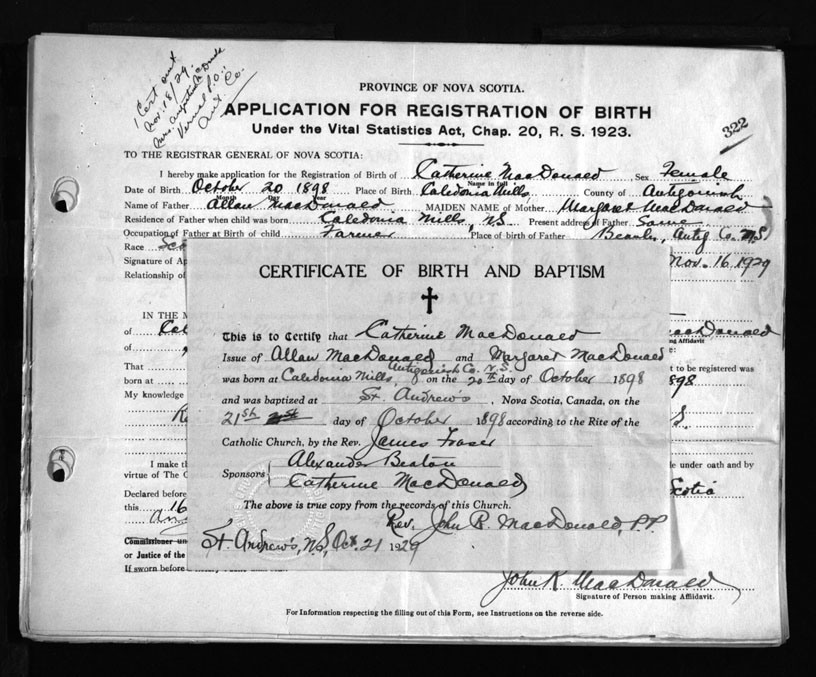 1 Cert out
Nov. 18/29.
Mrs. Augustin
Vernal P.O.,
Ant. Co.
322
PROVINCE OF NOVA SCOTIA.
APPLICATION FOR REGISTRATION OF BIRTH
Under the Vital Statistics Act, Chap. 20, R. S. 1923.
TO THE REGISTRAR GENERAL OF NOVA SCOTIA:
I hereby make application for the Registration of Birth of Catherine MacDonald Sex Female
Name in full
Date of Birth October 20 1898 Place of Birth Caledonia Mills, County of Antigonish
Month Day Year
Name of Father Allan MacDonald MAIDEN NAME of Mother Margaret MacDonald
Residence of Father when child was born Caledonia Mills, N.S. Present address of Father Same
Occupation of Father at Birth of child Farmer Place of birth of Father Antig Co. N.S.
Race
Signature of Ap Nov. 16 1929
Relationship of
CERTIFICATE OF BIRTH AND BAPTISM
This is to Certify that Catherine MacDonald
Issue of Allan MacDonald and Margaret MacDonald
Antigonish Co. N.S.
was born at Caledonia Mills, on the 20th day of October 1898
and was baptized at St. Andrews, Nova Scotia, Canada, on the
21st day of October 1898 according to the Rite of the
Catholic Church, by the Rev. James Fraser
Sponsors Alexander Beaton
Catherine MacDonald
The above is true copy from the records of this Church.
Rev. John B. MacDonald, P.P.
St. Andrew's, N.S. Oct. 21 1929
IN THE M
of
acDonald
king Affidavit
of
That t to be registered was
born at 898
My knowledge
I make th e under oath and by
virtue of The C Scotia
Declared before
this 16
Commissioner un
or Justice of the
If sworn before
John K. MacDonald
Signature of Person making Affidavit.
For Information respecting the filling out of this Form, see Instructions on the reverse side.